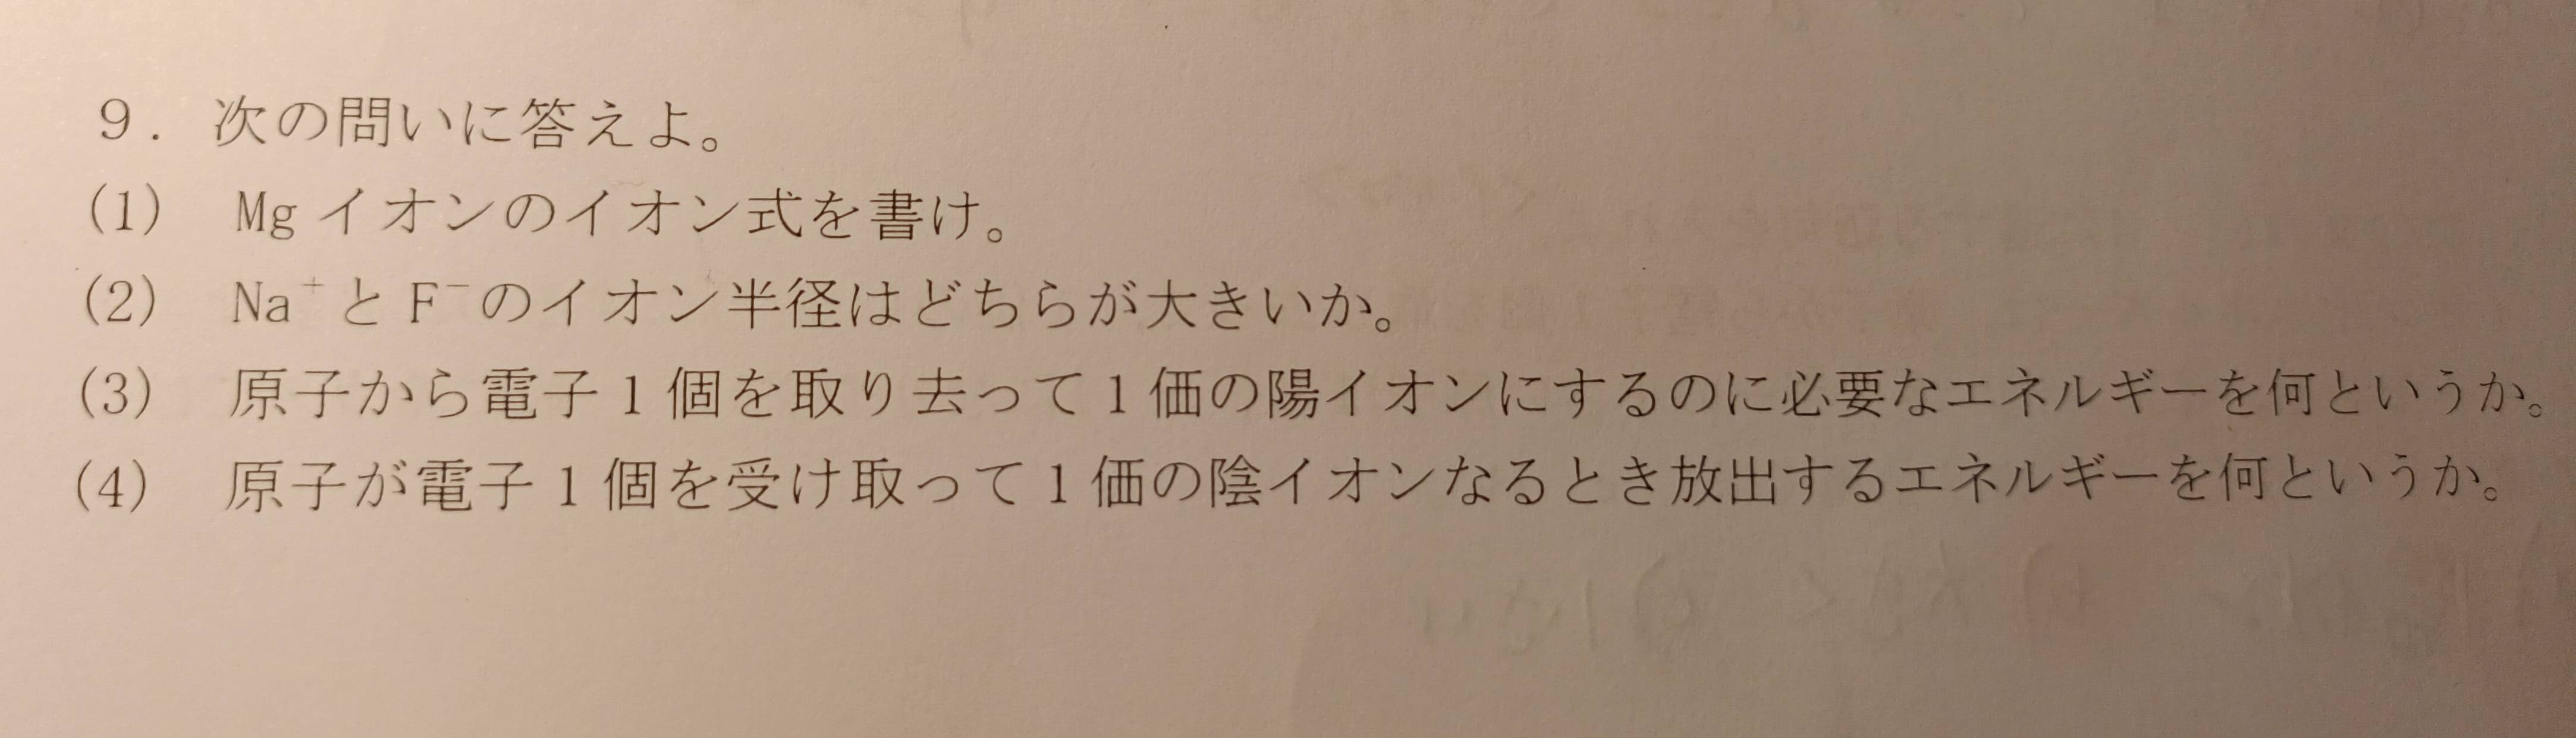 9．次の問いに答えよ。
(1)　Mg イオンのイオン式を書け。
(2)　Na⁺と F⁻のイオン半径はどちらが大きいか。
(3)　原子から電子１個を取り去って１価の陽イオンにするのに必要なエネルギーを何というか。
(4)　原子が電子１個を受け取って１価の陰イオンなるとき放出するエネルギーを何というか。